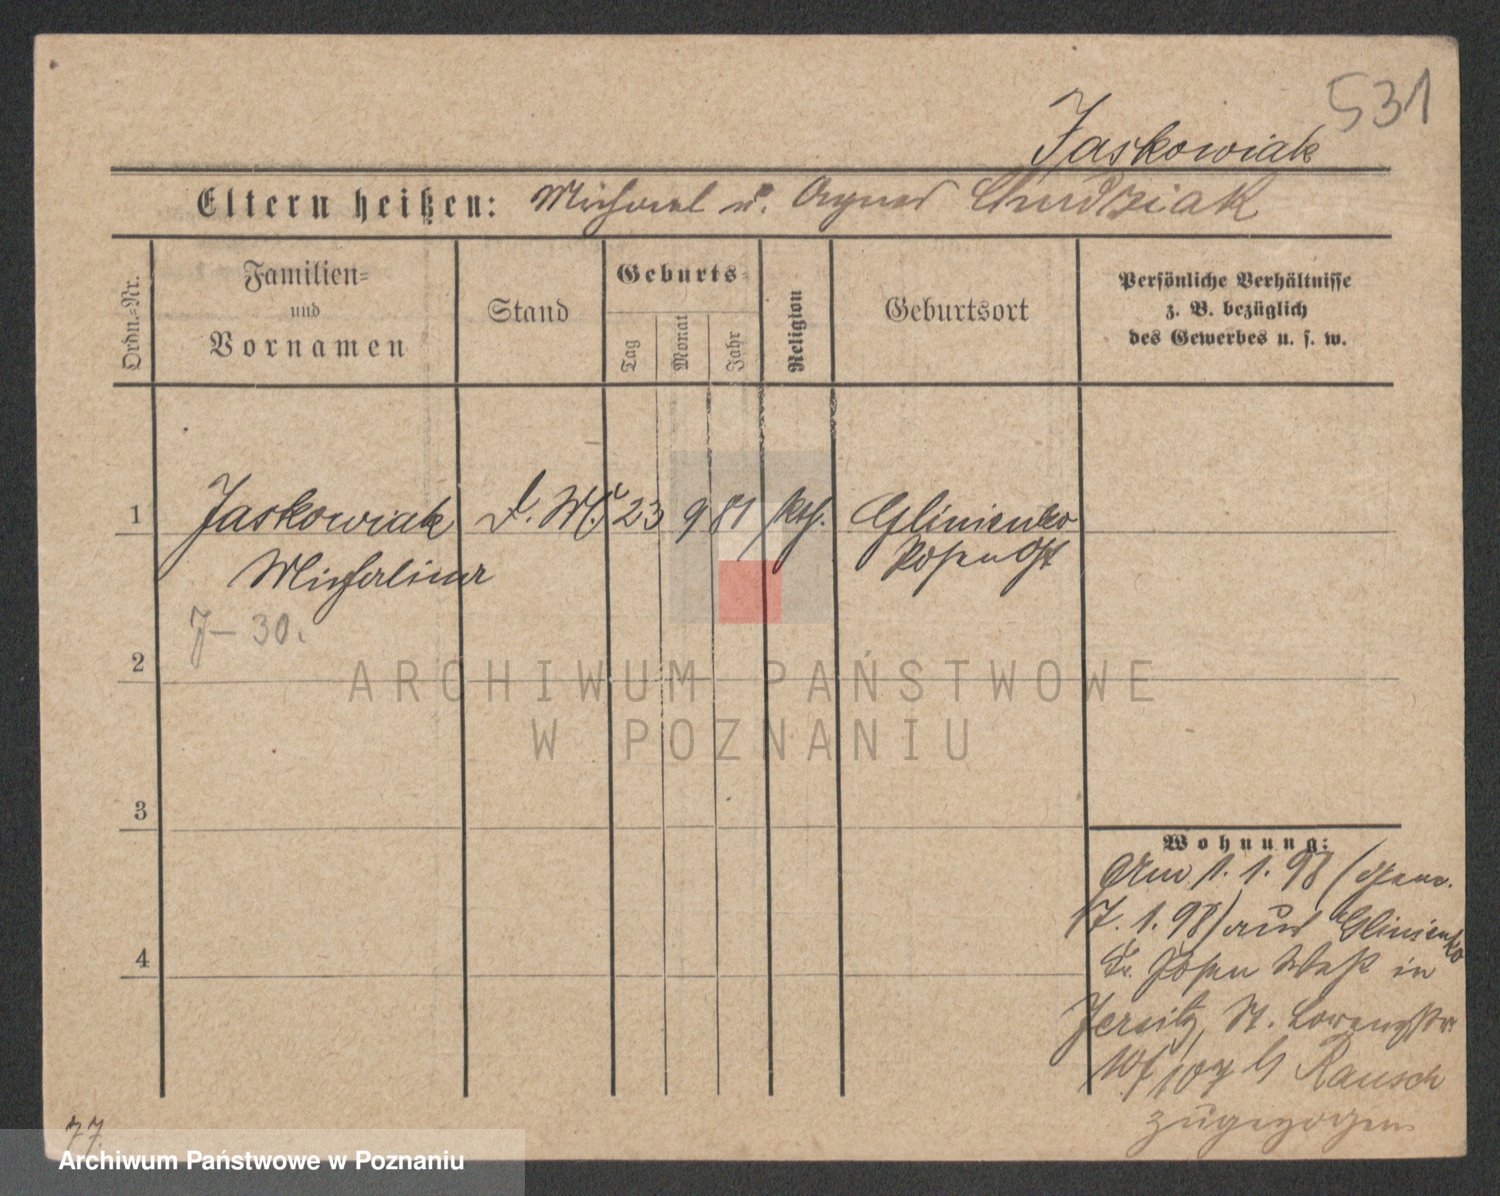 531
Jaskowiak
Eltern heißen: Michael u. Agnes Chudziak
Ordn.-Nr.
Familien-
und
Vornamen
Stand
Geburts-
Tag
Monat
Jahr
Religion
Geburtsort
Persönliche Verhältnisse
z. B. bezüglich
des Gewerbes u. s. w.
1 Jaskowiak D. M. 23 9 81 kth. Glinienko
Michalina Posen Ost
J – 30.
2
3
4
Wohnung:
Am 1. 1. 98 (gem.
17. 1. 98) aus Glinienko
Kr. Posen West in
Jersitz, St. Lorenzstr.
10f/10g b Rausch
zugezogen
77.
ARCHIWUM PAŃSTWOWE
W POZNANIU
Archiwum Państwowe w Poznaniu